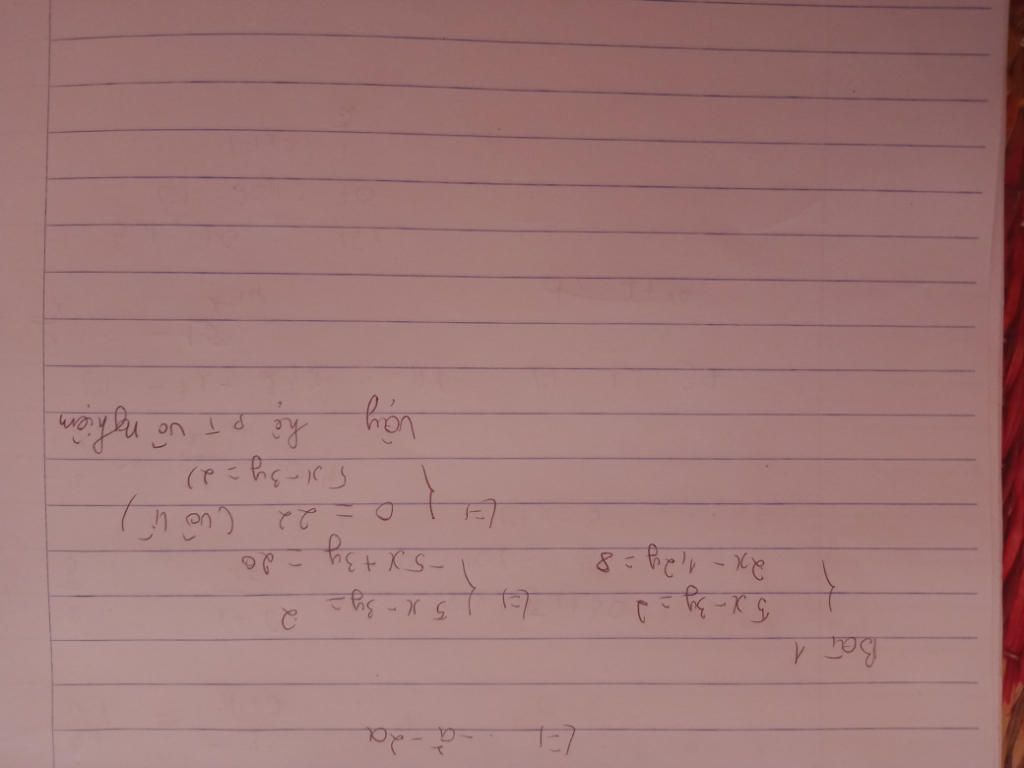 (=) -a² - 2a
Bài 1
{ 5x - 3y = 2 (=) { 5x - 3y = 2
2x - 1,2y = 8 -5x + 3y = 20
(=) { 0 = 22 (vô lí)
5x - 3y = 2)
Vậy hệ pT vô nghiệm